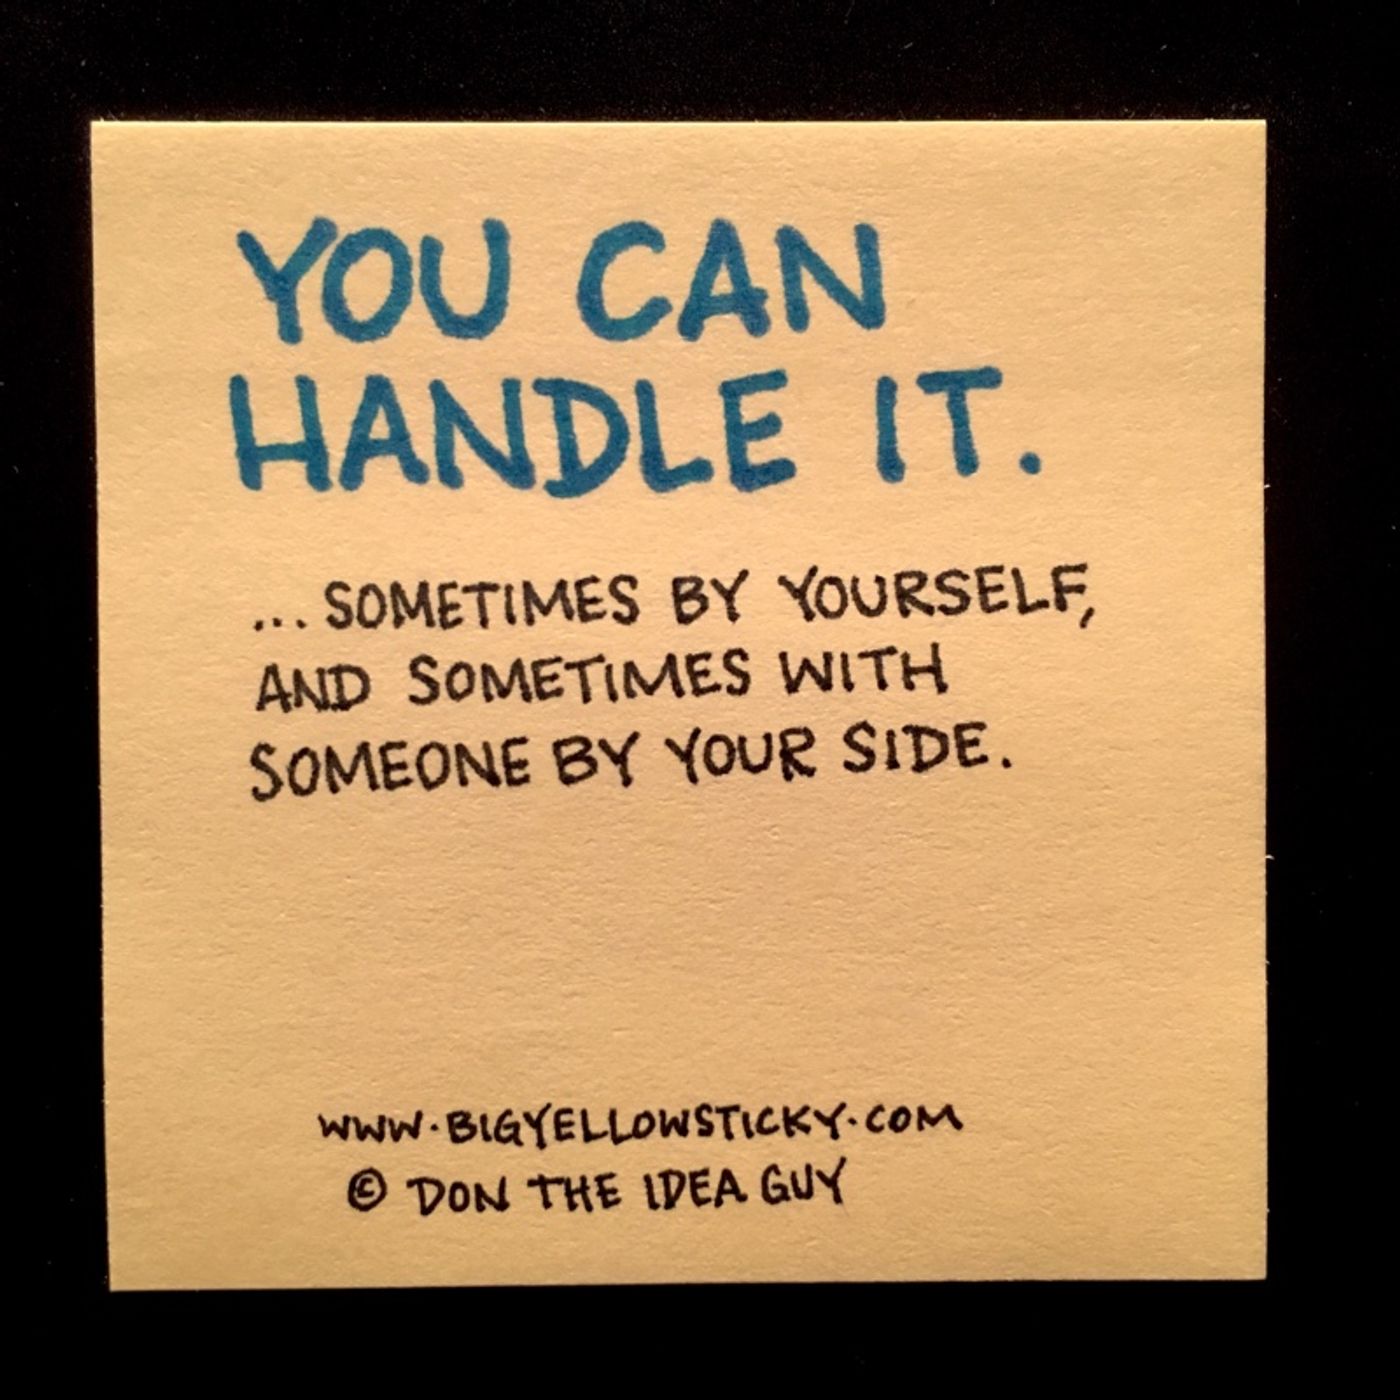 YOU CAN
HANDLE IT.
...SOMETIMES BY YOURSELF,
AND SOMETIMES WITH
SOMEONE BY YOUR SIDE.
WWW.BIGYELLOWSTICKY.COM
© DON THE IDEA GUY